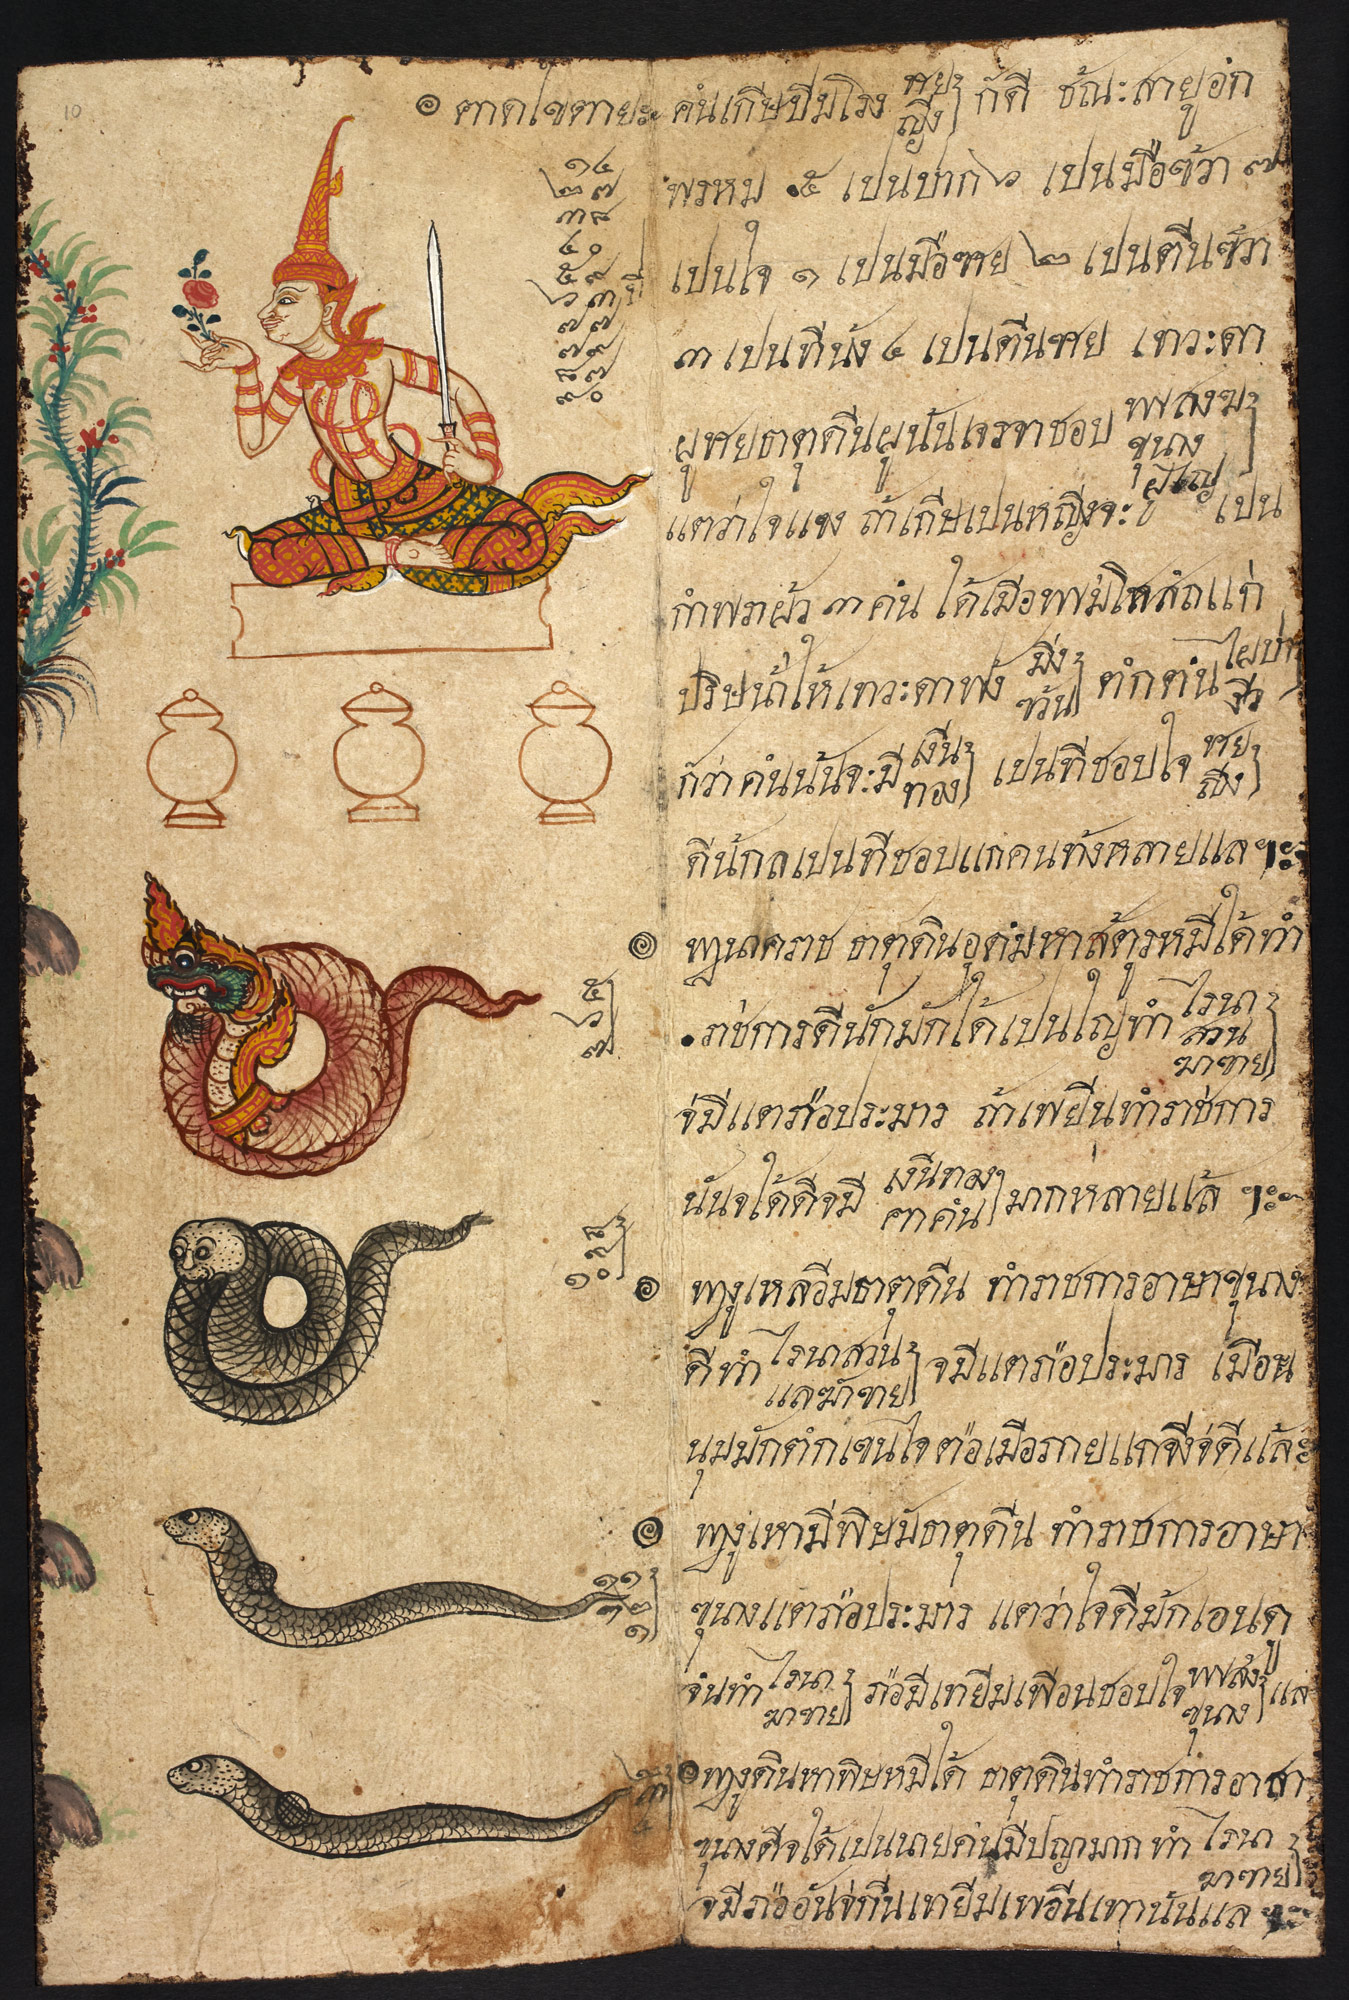 10
๏ ฅาดไขตายะ คํนเกีษปีมโรง ชาย ญีง ก้ดี ชัณะสายูอก
๑๔
๒๗
๓๘
๔๐
๕๙
๖๓ ที
๗๗
๗๙
๘๗
๙๐
พรหม ๕ เปนปาก ๖ เปนมือขัวา ๗
เปนใจ ๑ เปนมือซาย ๒ เปนตีนขัวา
๓ เปนทีนัง ๔ เปนตีนซาย เทวะดา
ผูชายธาตุดีนผูนันเจรจาชอบ พระสงฆ ขุนาง ผูใหญ
แตว่าใจแขง ถ้าเกีษเปนหญีงจะ เปน
กำพภผัว ๓ คํน ได้เมือพมีโหสํถแก่
ปริษนําให้เทวะดาฟง ตํกตํน
ก้ว่าคํนนันจะมี เงีน ทอง เปนทีชอบใจ ชาย ญีง
ดีนักลเปนทีชอบแกคนทังหลายแล ๚ะ
๏ พญนาคราช ธาตุดินอุดํมหาสัตูรหมีได้ทำ
๕
๖
๗
ราชการดีนักมักได้เปนใญทำ ไรนา สวน ฆาขาย
จ่มีแตภ่อประมาร ถ้าเพยีนทำราชการ
นันจได้ดีจมี เงีนทอง ฅาคํน มากหลายแล้ ๚ะ
๘
๙
๑๐
๏ พญงูเหลอีมธาตุดีน ทำราชการอาษาขุนาง
ดีทำ ไรนาสวน แลฆ้าขาย จมีแตภ่อประมาร เมือห
นุมมักตํกเขนใจต่อเมือภายแกจีงจ่ดีแล้ะ
๑๑
๑๒
๑
๏ พญงูเหามีพิษมัธาตุดีน ทำราชการอาษา
ขุนางแตภ่อประมาร แตว่าใจดีมักเอนดู
จํนทำ ไรนา ฆาขาย ภ่อมีเทยีมเพือนชอบใจ พระสํง ขุนาง แล
๒
๓
๔
๏ พญงูดินหาพิษหมีได้ ธาตุดินทำราชการอาสา
ขุนางดีจได้เปนนายคํนมีปญามาก ทำ ไรนา ฆาขาย
จมีภ่ออันจ่กีนเทยีมเพอีนเทานันแล ๚ะ